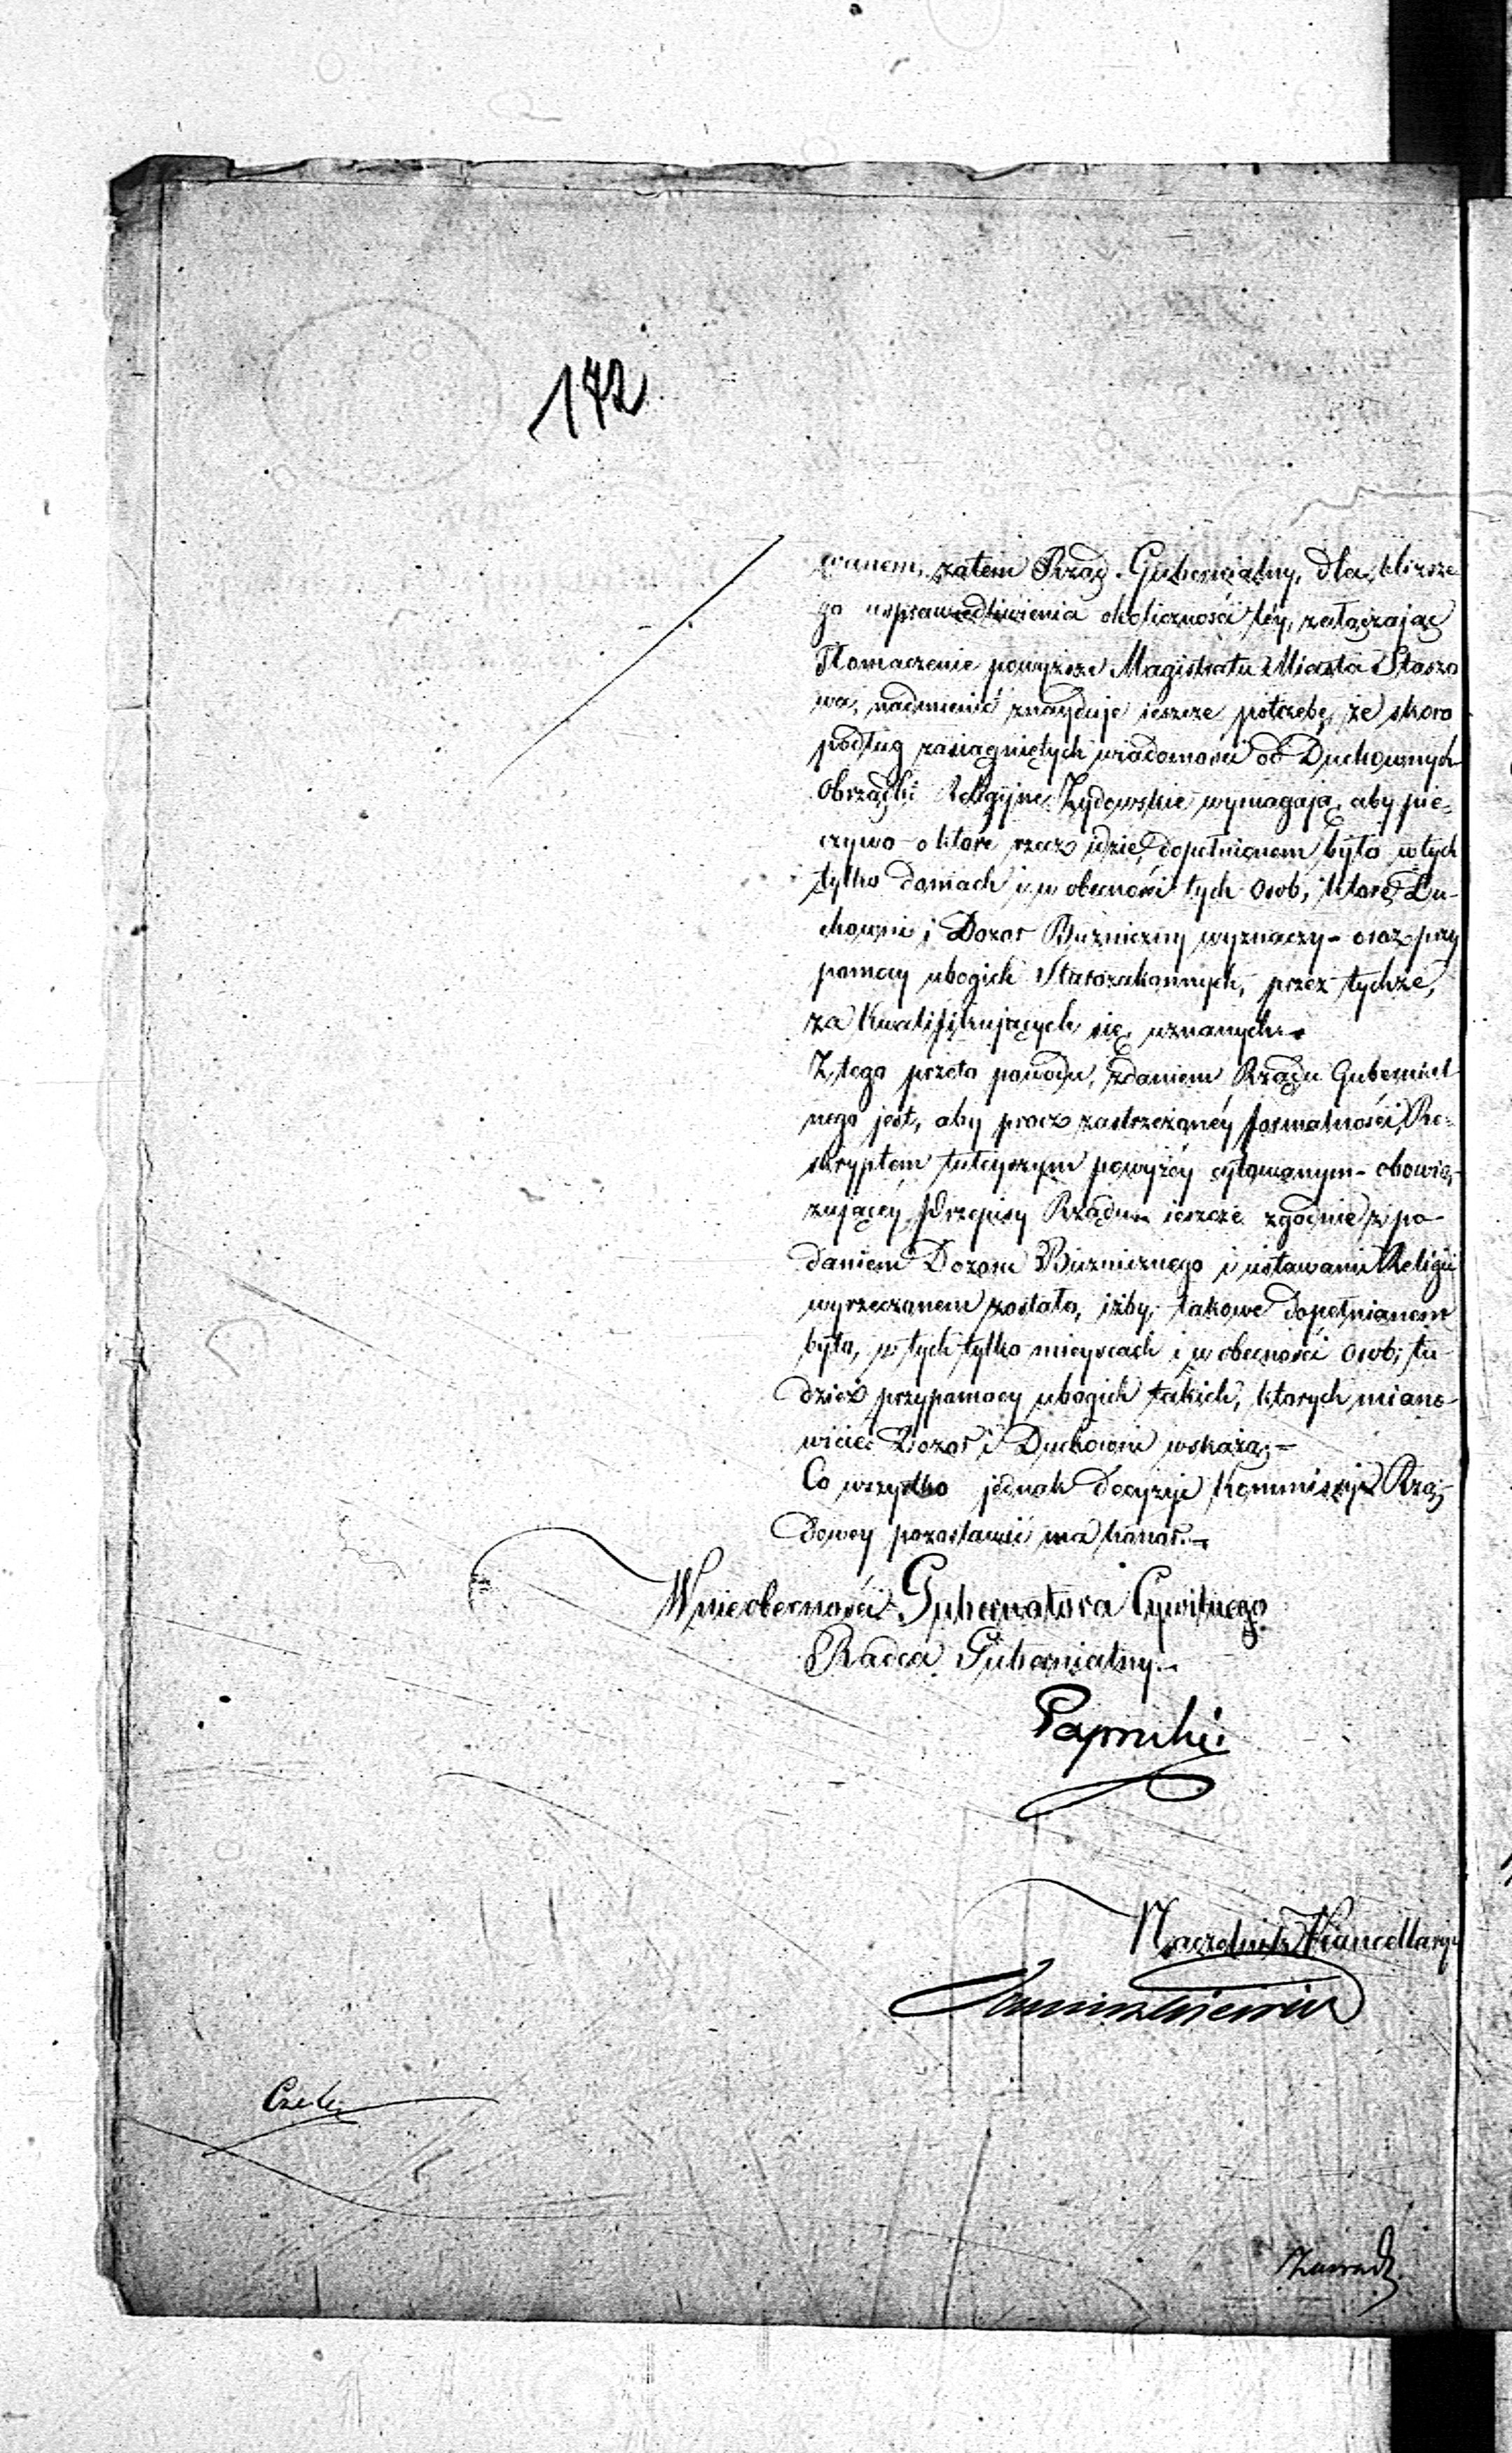 172
wanem, zatem Rząd Gubernialny, dla bliższe
go usprawiedliwienia okoliczności téy, załączając
Tłomaczenie powyższe Magistratu Miasta Staszo
wa, nadmienić znayduje ieszcze potrzebę, że skoro
podług zasiągniętych wiadomości od Duchownych
Obrządki Religijne Żydowskie wymagają, aby pie-
czywo o które rzecz idzie, dopełnionem było w tych
tylko domach i w obecności tych osob, które Du-
chowni i Dozor Bużniczny wyznaczy - oraz przy
pomocy ubogich Starozakonnych, przez tychże,
za kwalifikujących się uznanych.
Z tego przeto powodu, zdaniem Rządu Gubernial
nego jest, aby procz zastrzeżonéy formalności, Re-
skryptem tuteyszym powyżéy cytowanym - obowią-
zującéy Przepisy Rządu ieszcze zgodnie z po-
daniem Dozoru Bużnicznego i ustawami Religii
wyrzeczonem zostało, iżby takowe dopełnianem
było, w tych tylko mieyscach i w obecności osob, tu
dzież przy pomocy ubogich takich, ktorych miano-
wicie Dozor i Duchowni wskażą. -
Co wszystko jednak decyzyi Kommissyi Rzą-
dowey pozostawić ma honor. -
W nieobecności Gubernatora Cywilnego
Radca Gubernialny. -
Paprocki
Naczelnik Kancellaryi